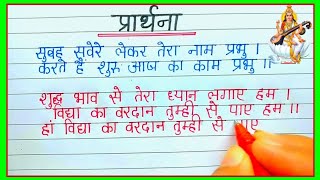 प्रार्थना
सुबह सवेरे लेकर तेरा नाम प्रभु ।
करते है शुरू आज का काम प्रभु ॥
शुद्ध भाव से तेरा ध्यान लगाए हम ।
विद्या का वरदान तुम्ही से पाए हम ।।
हां विद्या का वरदान तुम्ही से पाए